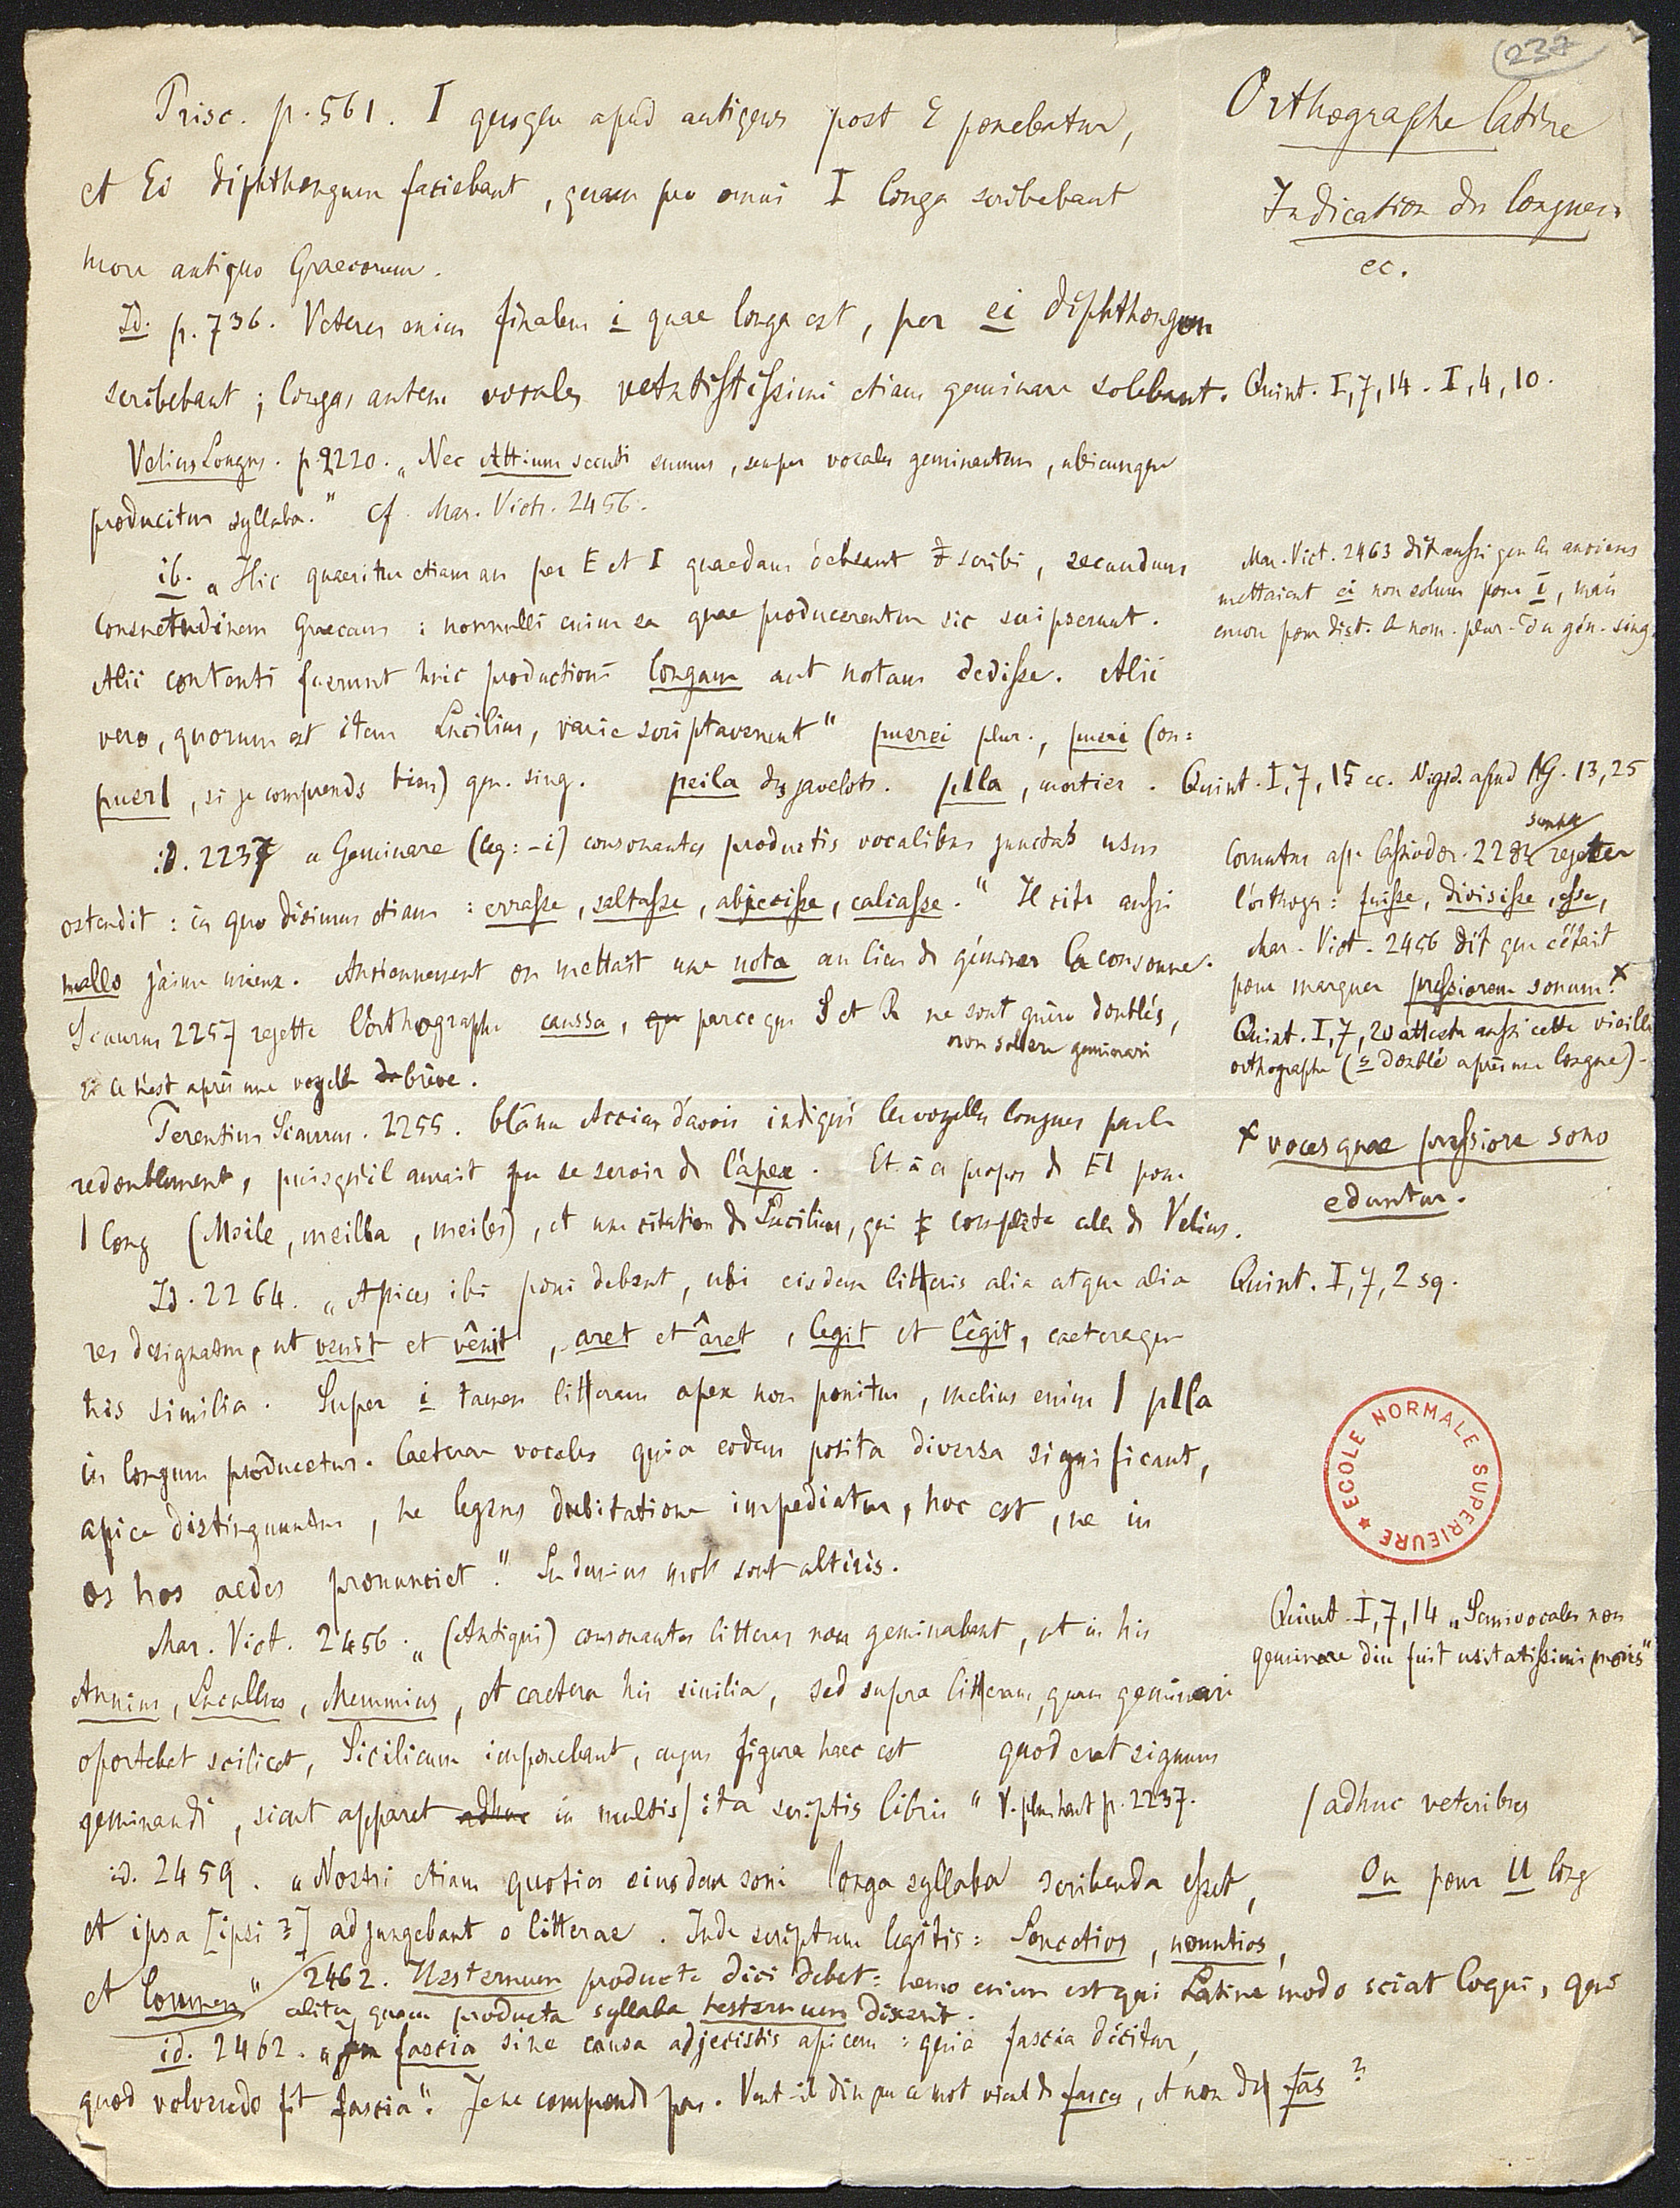 237
Orthographe latine
Indication des longues
ec.
Prisc. p. 561. I quoque apud antiquos post E ponebatur,
et Ei diphthongum faciebant, quam pro omni I longa scribebant
more antiquo Graecorum.
Id. p. 736. Veteres enim finalem i quae longa est, per ei diphthongum
scribebant ; longas autem vocales vetustissimi etiam geminare solebant. Quint. I, 7, 14. I, 4, 10.
Velius Longus. p. 2220. „Nec Attium secuti sumus, semper vocales geminantem, ubicunque
producitur syllaba." Cf. Mar. Vict. 2456.
ib. „Hic quaeritur etiam an per E et I quaedam debeant scribi, secundum
consuetudinem Graecam : nonnulli enim ea quae producerentur sic scripserunt.
Alii contenti fuerunt huic productioni longam aut notam dedisse. Alii
vero, quorum est item Lucilius, varie scriptaverunt" puerei plur., pueri (ou :
puerI, si je comprends bien) gen. sing. peila des javelots. pIla, mortier.
Mar. Vict. 2463 dit aussi que les anciens
mettaient ei non solum pour ī, mais
encore pour dist. le nom. plur. du gén. sing.
Quint. I, 7, 15 ec. Nigid. apud AG. 13, 25
id. 2237 „Geminare (leg : -i) consonantes productis vocalibus junctas usus
ostendit : in quo dicimus etiam : errasse, saltasse, abjecisse, calcasse." Il cite aussi
mallo j'aime mieux. Anciennement on mettait une nota au lieu de géminer la consonne.
Scaurus 2257 rejette l'orthographe caussa, qu parce que S et R ne sont guère doublés,
non solere geminari
si ce n'est après une voyelle de brève.
Cornutus ap. Cassiodor. 2284 semble rejeter
l'orthogr : fuisse, divisisse, esse,
Mar. Vict. 2456 dit que c'était
pour marquer pressiorem sonum. x
Quint. I, 7, 20 atteste aussi cette vieille
orthographe (s doublé après une longue).
x voces quae pressiore sono
eduntur.
Terentius Scaurus. 2255. blâme Accius d'avoir indiqué les voyelles longues par le
redoublement, puisqu'il aurait pu se servir de l'apex. Et à ce propos de EI pour
I long (Meile, meillia, meiles), et une citation de Lucilius, qui complète celle de Velius.
Id. 2264. „Apices ibi poni debent, ubi eisdem litteris alia atque alia
res designatur, ut venit et vênit, aret et âret, legit et lêgit, caeteraque
his similia. Super i tamen litteram apex non ponitur, melius enim I pIla
in longum producetur. Caeterae vocales quia eodem posita diversa significant,
apice distinguuntur, ne legens dubitatione impediatur, hoc est, ne in
os hos aedes pronunciet." Les derniers mots sont altérés.
Quint. I, 7, 2 sq.
ECOLE NORMALE SUPERIEURE
Mar. Vict. 2456. „(Antiqui) consonantes litteras non geminabant, ut in his
Annius, Lucullus, Memmius, et caetera his similia, sed supra litteram, quam geminari
oportebat scilicet, Sicilicum imponebant, cujus figura haec est quod erat signum
geminandi, sicut apparet adhuc in multis/ ita scriptis libris" V. plus haut p. 2237.
Quint. I, 7, 14 „Semivocales non
geminare diu fuit usitatissimi moris"
/ adhuc veteribus
id. 2459. „Nostri etiam quoties ejusdem soni longa syllaba scribenda esset,
et ipsa [ipsi ?] adjungebant o litterae. Inde scriptum legitis : Loucetios, nountios,
et loumen"
Ou pour U long
2462. Hesternum producte dici debet : nemo enim est qui Latine modo sciat loqui, qui
aliter quam producta syllaba hesternum dixerit.
id. 2462. „fascia sine causa adjecistis apicem : quia fascia dicitur,
quod volvendo fit fascia". Je ne comprends pas. Veut-il dire que ce mot vient de fasces, et non de fās ?